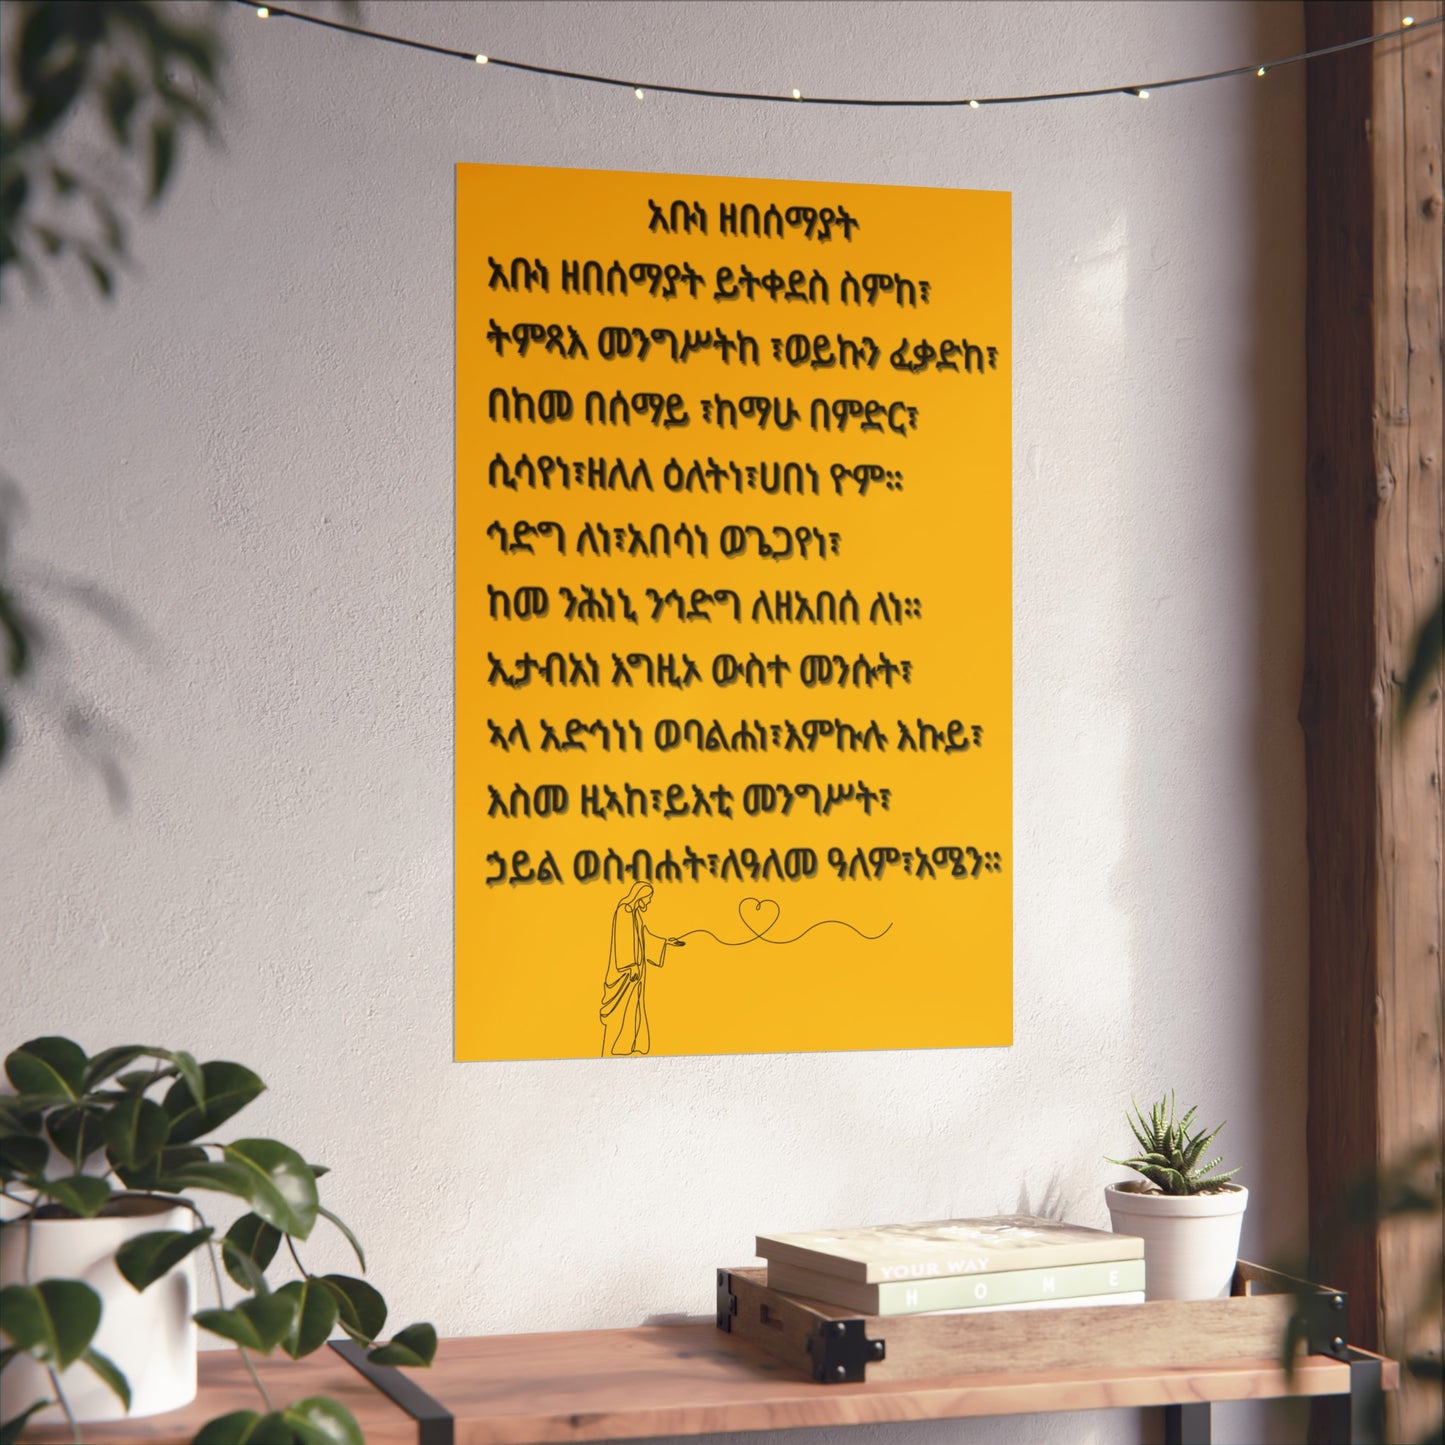 አቡነ ዘበሰማያት
አቡነ ዘበሰማያት ይትቀደስ ስምከ፣
ትምጻእ መንግሥትከ ፣ወይኩን ፈቃድከ፣
በከመ በሰማይ ፣ከማሁ በምድር፣
ሲሳየነ፣ዘለለ ዕለትነ፣ሀበነ ዮም።
ኅድግ ለነ፣አበሳነ ወጌጋየነ፣
ከመ ንሕነኒ ንኅድግ ለዘአበሰ ለነ።
ኢታብአነ እግዚኦ ውስተ መንሱት፣
ኣላ አድኅነነ ወባልሐነ፣እምኩሉ እኩይ፣
እስመ ዚኣከ፣ይእቲ መንግሥት፣
ኃይል ወስብሐት፣ለዓለመ ዓለም፣አሜን።
YOUR WAY
HOME